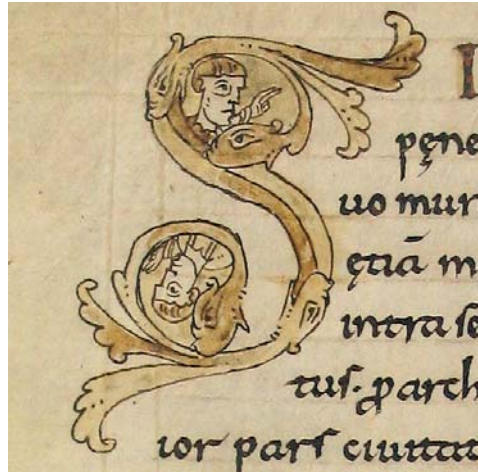 S
pęne
uo mur
ętiā m
intra se
tus· ꝓarch
ior pars ciuitat